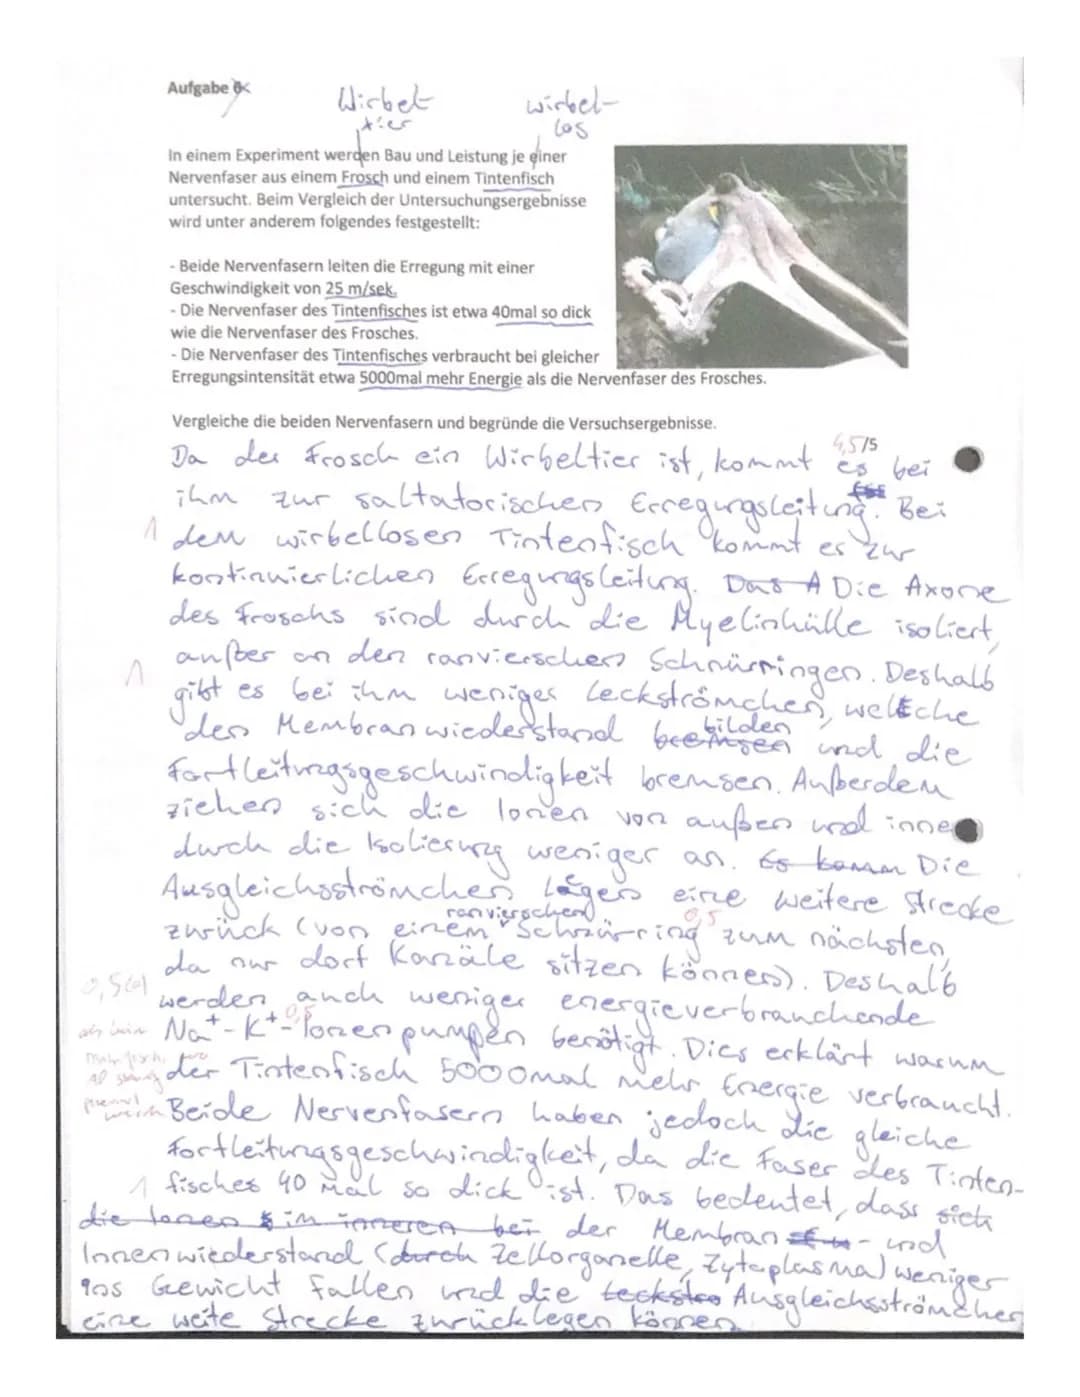 Aufgabe
Wirbel-
tier
wirbel-
los
In einem Experiment werden Bau und Leistung je einer
Nervenfaser aus einem Frosch und einem Tintenfisch
untersucht. Beim Vergleich der Untersuchungsergebnisse
wird unter anderem folgendes festgestellt:
- Beide Nervenfasern leiten die Erregung mit einer
Geschwindigkeit von 25 m/sek.
- Die Nervenfaser des Tintenfisches ist etwa 40mal so dick
wie die Nervenfaser des Frosches.
- Die Nervenfaser des Tintenfisches verbraucht bei gleicher
Erregungsintensität etwa 5000mal mehr Energie als die Nervenfaser des Frosches.
Vergleiche die beiden Nervenfasern und begründe die Versuchsergebnisse.
4,5/5
Da der Frosch ein Wirbeltier ist, kommt es bei
ihm zur saltatorischen Erregungsleitung. Bei
1 dem wirbellosen Tintenfisch kommt es zur
kontinuierlichen Erregungsleitung. Das A Die Axone
des Froschs sind durch die Myelinhülle isoliert,
1 außer an den ranvierschen Schnürringen. Deshalb
gibt es bei ihm weniger Leckströmchen, welche
den Membranwiederstand bilden und die
Fortleitungsgeschwindigkeit bremsen. Außerdem
ziehen sich die Ionen von außen und innen
durch die Isolierung weniger an. Es kommt Die
Ausgleichsströmchen legen eine weitere Strecke
zurück (von einem ranvierschen Schnürring 0,5 zum nächsten,
da nur dort Kanäle sitzen können). Deshalb
werden auch weniger energieverbrauchende
0,5
Na⁺-K⁺-Ionenpumpen benötigt. Dies erklärt warum
der Tintenfisch 5000mal mehr Energie verbraucht.
Beide Nervenfasern haben jedoch die gleiche
Fortleitungsgeschwindigkeit, da die Faser des Tinten-
1 fisches 40 Mal so dick ist. Das bedeutet, dass sich
die Ionen im inneren bei der Membran- und
Innenwiederstand (durch Zellorganelle, Zytoplasma) weniger
ins Gewicht fallen und die Leckströ Ausgleichsströmchen
eine weite Strecke zurücklegen können.